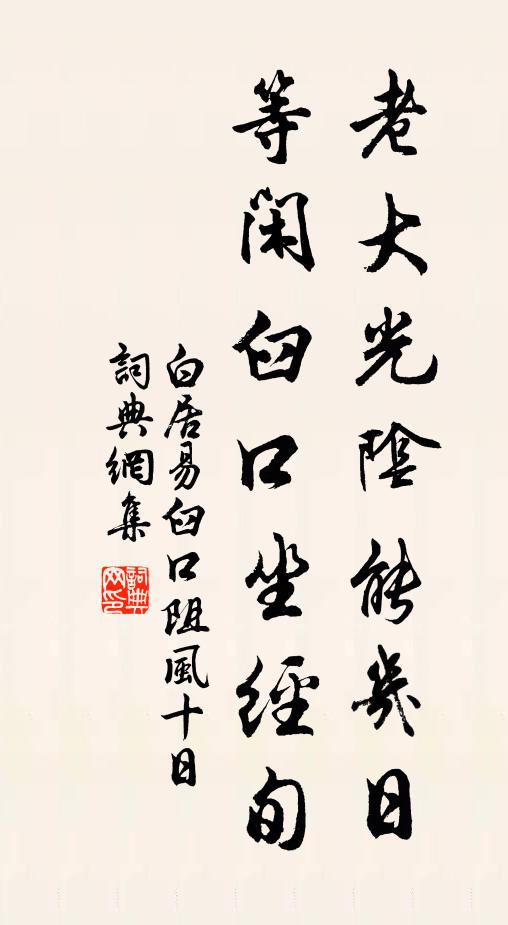 老大光陰能幾日
等閑臼口坐經旬
白居易臼口阻風十日
詞典網集
詞典網印